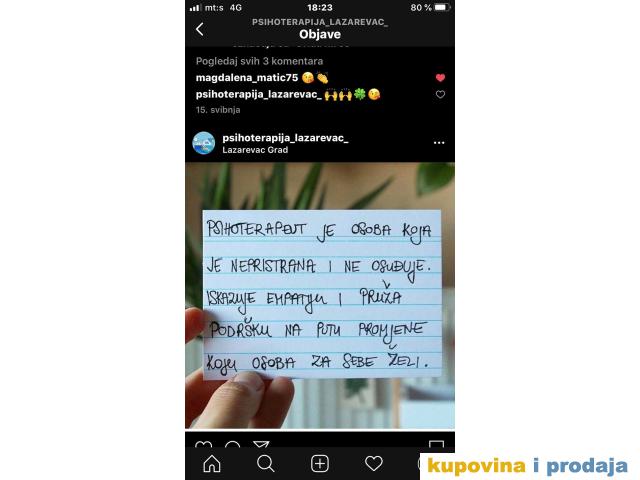 mt:s 4G 18:23 80 %
PSIHOTERAPIJA_LAZAREVAC_
Objave
Pogledaj svih 3 komentara
magdalena_matic75 😘👏
psihoterapija_lazarevac_ 🙌🙌🍀😘
15. svibnja
psihoterapija_lazarevac_
Lazarevac Grad
PSIHOTERAPEUT JE OSOBA KOJA
JE NEPRISTRANA I NE OSUĐUJE.
ISKAZUJE EMPATIJU I PRUŽA
PODRŠKU NA PUTU PROMJENE
KOJU OSOBA ZA SEBE ŽELI.
kupovina i prodaja